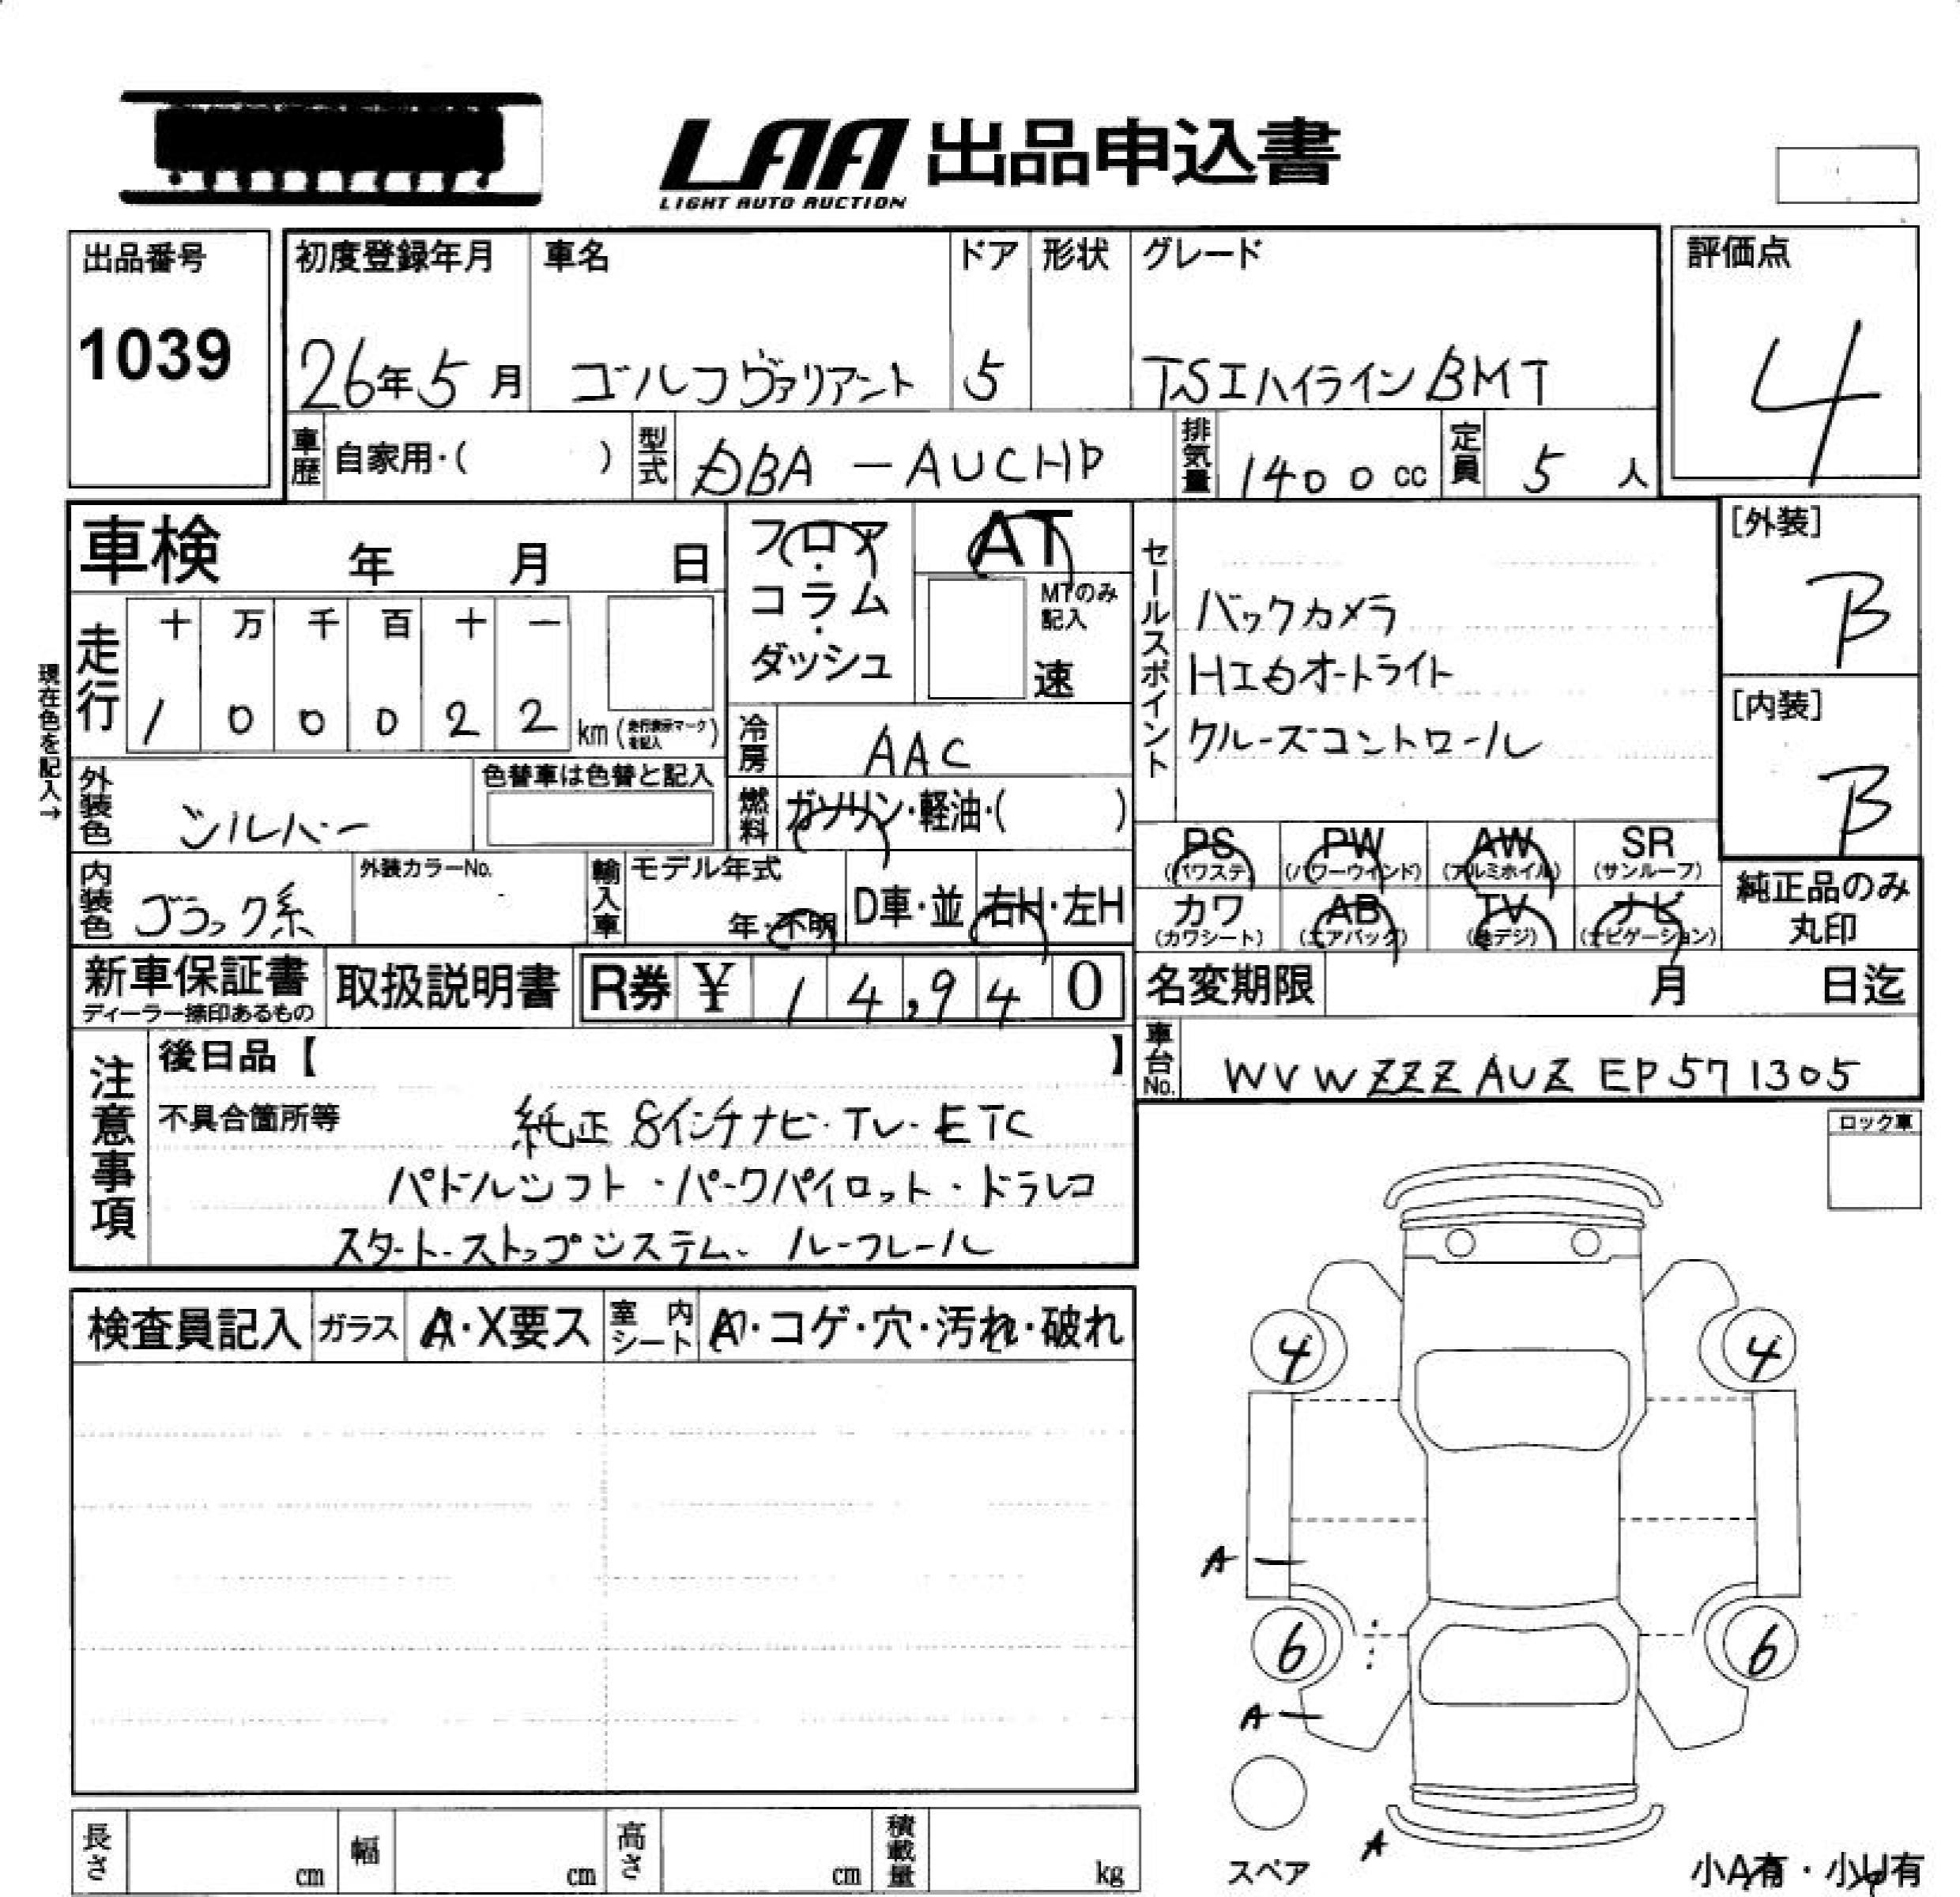 LAA 出品申込書
LIGHT AUTO AUCTION
出品番号
1039
初度登録年月
26年5月
車名
ゴルフヴァリアント
ドア
5
形状
グレード
TSIハイラインBMT
評価点
4
車歴 自家用・( )
型式 DBA-AUCHP
排気量 1400cc
定員 5人
車検 年 月 日
フロア・コラム・ダッシュ
AT
MTのみ記入
速
セールスポイント
バックカメラ
HIDオートライト
クルーズコントロール
[外装]
B
[内装]
B
現在色を記入→
走行
十 万 千 百 十 一
1 0 0 0 2 2 km (走行表示マークを記入)
冷房 AAC
外装色 シルバー
色替車は色替と記入
燃料 ガソリン・軽油・( )
PS (パワステ) PW (パワーウインド) AW (アルミホイル) SR (サンルーフ)
カワ (カワシート) AB (エアバック) TV (地デジ) ナビ (ナビゲーション)
純正品のみ丸印
内装色 ブラック系
外装カラーNo.
輸入車 モデル年式
年・不明
D車・並 右H・左H
新車保証書
ディーラー捺印あるもの
取扱説明書
R券 ¥ 14,940
名変期限 月 日迄
車台No. WVWZZZAUZEP571305
注意事項
後日品【 】
不具合箇所等 純正8インチナビ・TV・ETC
パドルシフト・パークパイロット・ドラレコ
スタート・ストップシステム・ルーフレール
ロック車
検査員記入 ガラス A・X要ス 室内シート A・コゲ・穴・汚れ・破れ
4 4
A
6 6
A
スペア
A
小A有・小U有
長さ cm 幅 cm 高さ cm 積載量 kg